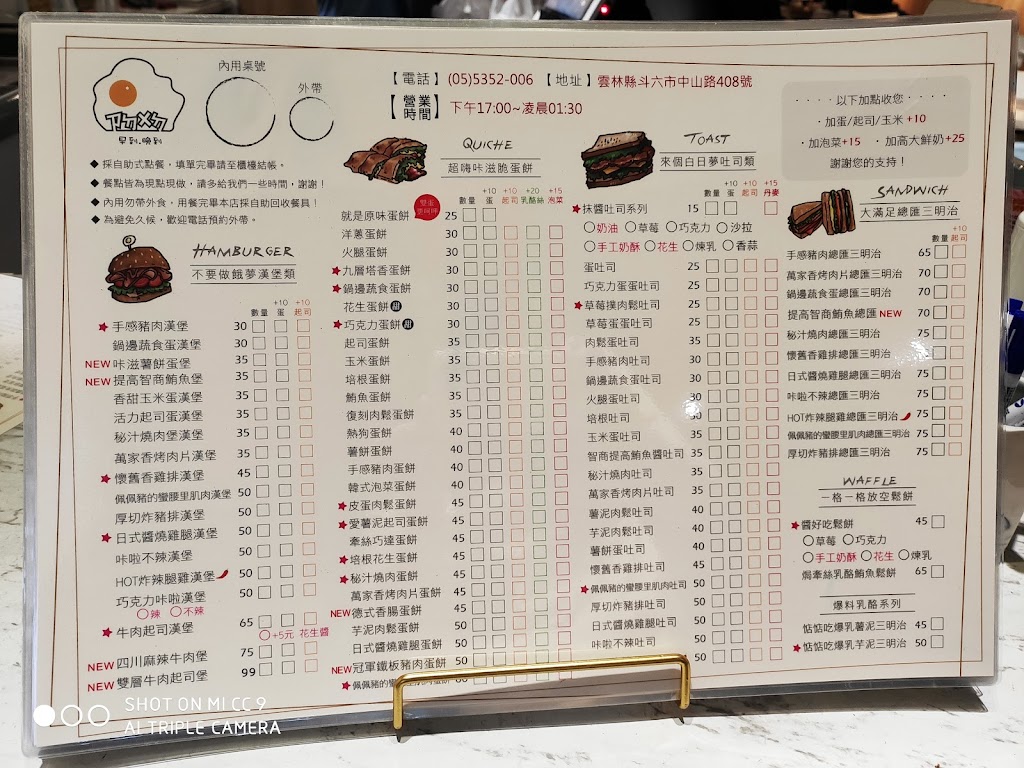 內用桌號
外帶
【電話】(05)5352-006 【地址】雲林縣斗六市中山路408號
【營業時間】下午17:00~凌晨01:30
早到.晚到
◆ 採自助式點餐，填單完畢請至櫃檯結帳。
◆ 餐點皆為現點現做，請多給我們一些時間，謝謝！
◆ 內用勿帶外食，用餐完畢本店採自助回收餐具！
◆ 為避免久候，歡迎電話預約外帶。
····以下加點收您····
·加蛋/起司/玉米 +10
·加泡菜+15 ·加高大鮮奶+25
謝謝您的支持！
HAMBURGER
不要做餓夢漢堡類
+10 +10
數量 蛋 起司
★ 手感豬肉漢堡 30
鍋邊蔬食蛋漢堡 30
NEW 咔滋薯餅蛋堡 35
NEW 提高智商鮪魚堡 35
香甜玉米蛋漢堡 35
活力起司蛋漢堡 35
秘汁燒肉堡漢堡 35
萬家香烤肉片漢堡 35
★ 懷舊香雞排漢堡 45
佩佩豬的蠻腰里肌肉漢堡 50
厚切炸豬排漢堡 50
★ 日式醬燒雞腿漢堡 50
咔啦不辣漢堡 50
HOT炸辣腿雞漢堡 50
巧克力咔啦漢堡 50
○辣 ○不辣
★ 牛肉起司漢堡 65
○+5元 花生醬
NEW 四川麻辣牛肉堡 75
NEW 雙層牛肉起司堡 99
QUICHE
超嗨咔滋脆蛋餅
+10 +10 +20 +15
數量 蛋 起司 乳酪絲 泡菜
就是原味蛋餅 25
洋蔥蛋餅 30
火腿蛋餅 30
★ 九層塔香蛋餅 30
★ 鍋邊蔬食蛋餅 30
花生蛋餅 甜 30
★ 巧克力蛋餅 甜 30
起司蛋餅 35
玉米蛋餅 35
培根蛋餅 35
鮪魚蛋餅 35
復刻肉鬆蛋餅 35
熱狗蛋餅 40
薯餅蛋餅 40
手感豬肉蛋餅 40
韓式泡菜蛋餅 40
★ 皮蛋肉鬆蛋餅 45
★ 愛薯泥起司蛋餅 45
牽絲巧達蛋餅 45
★ 培根花生蛋餅 45
★ 秘汁燒肉蛋餅 45
萬家香烤肉片蛋餅 45
NEW 德式香腸蛋餅 45
芋泥肉鬆蛋餅 50
日式醬燒雞腿蛋餅 50
NEW 冠軍鐵板豬肉蛋餅 50
★ 佩佩豬的
TOAST
來個白日夢吐司類
+10 +10 +15
數量 蛋 起司 丹麥
★ 抹醬吐司系列 15
○奶油 ○草莓 ○巧克力 ○沙拉
○手工奶酥 ○花生 ○煉乳 ○香蒜
蛋吐司 25
巧克力蛋蛋吐司 25
★ 草莓撲肉鬆吐司 25
草莓蛋蛋吐司 25
肉鬆蛋吐司 25
手感豬肉吐司 30
鍋邊蔬食蛋吐司 30
火腿蛋吐司 30
培根吐司 30
玉米蛋吐司 35
智商提高鮪魚醬吐司 35
秘汁燒肉吐司 35
萬家香烤肉片吐司 35
薯泥肉鬆吐司 40
芋泥肉鬆吐司 40
薯餅蛋吐司 40
懷舊香雞排吐司 45
★ 佩佩豬的蠻腰里肌肉吐司 50
厚切炸豬排吐司 50
日式醬燒雞腿吐司 50
咔啦不辣吐司 50
50
SANDWICH
大滿足總匯三明治
+10
數量 起司
手感豬肉總匯三明治 65
萬家香烤肉片總匯三明治 70
鍋邊蔬食蛋總匯三明治 70
提高智商鮪魚總匯 NEW 70
秘汁燒肉總匯三明治 75
懷舊香雞排總匯三明治 75
日式醬燒雞腿總匯三明治 75
咔啦不辣總匯三明治 75
HOT炸辣腿雞總匯三明治 75
佩佩豬的蠻腰里肌肉總匯三明治 75
厚切炸豬排總匯三明治 75
WAFFLE
一格一格放空鬆餅
★ 醬好吃鬆餅 45
○草莓 ○巧克力
○手工奶酥 ○花生 ○煉乳
焗牽絲乳酪鮪魚鬆餅 65
爆料乳酪系列
惦惦吃爆乳薯泥三明治 45
★ 惦惦吃爆乳芋泥三明治 50
SHOT ON MI CC 9
AI TRIPLE CAMERA